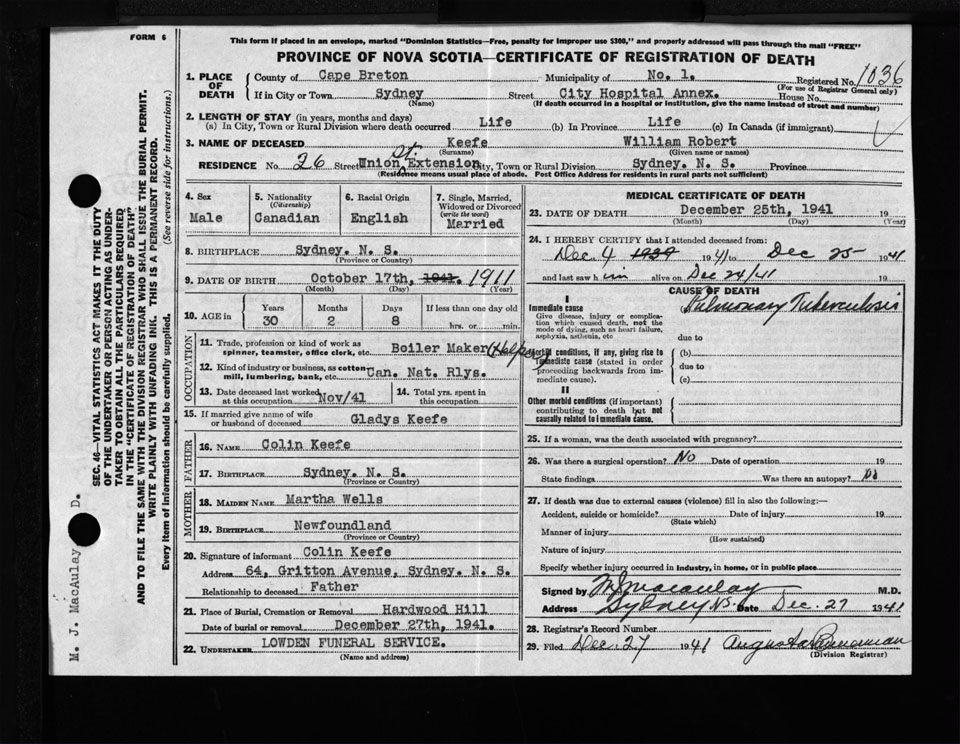 FORM 6
This form if placed in an envelope, marked "Dominion Statistics—Free, penalty for improper use $300," and properly addressed will pass through the mail "FREE"
PROVINCE OF NOVA SCOTIA—CERTIFICATE OF REGISTRATION OF DEATH
1. PLACE OF DEATH { County of Cape Breton Municipality of No. 1. Registered No. 1036
(For use of Registrar General only)
If in City or Town Sydney Street City Hospital Annex. House No.
(Name) (If death occurred in a hospital or institution, give the name instead of street and number)
2. LENGTH OF STAY (in years, months and days)
(a) In City, Town or Rural Division where death occurred Life (b) In Province Life (c) In Canada (if immigrant)
3. NAME OF DECEASED Keefe William Robert
(Surname) (Given name or names)
RESIDENCE No. 26 Street Union St. Extension City, Town or Rural Division Sydney. N. S. Province
(Residence means usual place of abode. Post Office Address for residents in rural parts not sufficient)
4. Sex Male
5. Nationality (Citizenship) Canadian
6. Racial Origin English
7. Single, Married, Widowed or Divorced (write the word) Married
8. BIRTHPLACE Sydney. N. S.
(Province or Country)
9. DATE OF BIRTH October 17th, 1941. 1911
(Month) (Day) (Year)
10. AGE in Years 30 Months 2 Days 8 If less than one day old hrs. or min.
OCCUPATION
11. Trade, profession or kind of work as spinner, teamster, office clerk, etc. Boiler Maker (Helper)
12. Kind of industry or business, as cotton mill, lumbering, bank, etc. Can. Nat. Rlys.
13. Date deceased last worked at this occupation Nov/41
14. Total yrs. spent in this occupation
15. If married give name of wife or husband of deceased Gladys Keefe
FATHER
16. NAME Colin Keefe
17. BIRTHPLACE Sydney. N. S.
(Province or Country)
MOTHER
18. MAIDEN NAME Martha Wells
19. BIRTHPLACE Newfoundland
(Province or Country)
20. Signature of informant Colin Keefe
Address 64, Gritton Avenue, Sydney. N. S.
Relationship to deceased Father
21. Place of Burial, Cremation or Removal Hardwood Hill
Date of burial or removal December 27th, 1941.
22. UNDERTAKER LOWDEN FUNERAL SERVICE.
(Name and address)
MEDICAL CERTIFICATE OF DEATH
23. DATE OF DEATH December 25th, 1941 19
(Month) (Day) (Year)
24. I HEREBY CERTIFY that I attended deceased from:
Dec. 4 1939 1941 to Dec 25 1941
and last saw h im alive on Dec 24/41 19
CAUSE OF DEATH
I
Immediate cause Pulmonary Tuberculosis
Give disease, injury or complication which caused death, not the mode of dying, such as heart failure, asphyxia, asthenia, etc
due to
Morbid conditions, if any, giving rise to immediate cause (stated in order proceeding backwards from immediate cause).
(b)
due to
(c)
II
Other morbid conditions (if important) contributing to death but not causally related to immediate cause.
25. If a woman, was the death associated with pregnancy?
26. Was there a surgical operation? No Date of operation 19
State findings Was there an autopsy? No
27. If death was due to external causes (violence) fill in also the following:—
Accident, suicide or homicide? Date of injury 19
(State which)
Manner of injury
(How sustained)
Nature of injury
Specify whether injury occurred in Industry, in home, or in public place
Signed by M J Macaulay M.D.
Address Sydney N S. Date Dec. 27 1941
28. Registrar's Record Number
29. Filed Dec. 27 1941
(Division Registrar)
SEC. 46—VITAL STATISTICS ACT MAKES IT THE DUTY
OF THE UNDERTAKER OR PERSON ACTING AS UNDER-
TAKER TO OBTAIN ALL THE PARTICULARS REQUIRED
IN THE "CERTIFICATE OF REGISTRATION OF DEATH"
AND TO FILE THE SAME WITH THE DIVISION REGISTRAR WHO SHALL ISSUE THE BURIAL PERMIT.
WRITE PLAINLY WITH UNFADING INK. THIS IS A PERMANENT RECORD.
Every item of information should be carefully supplied. (See reverse side for instructions.)
M. J. MacAulay D.